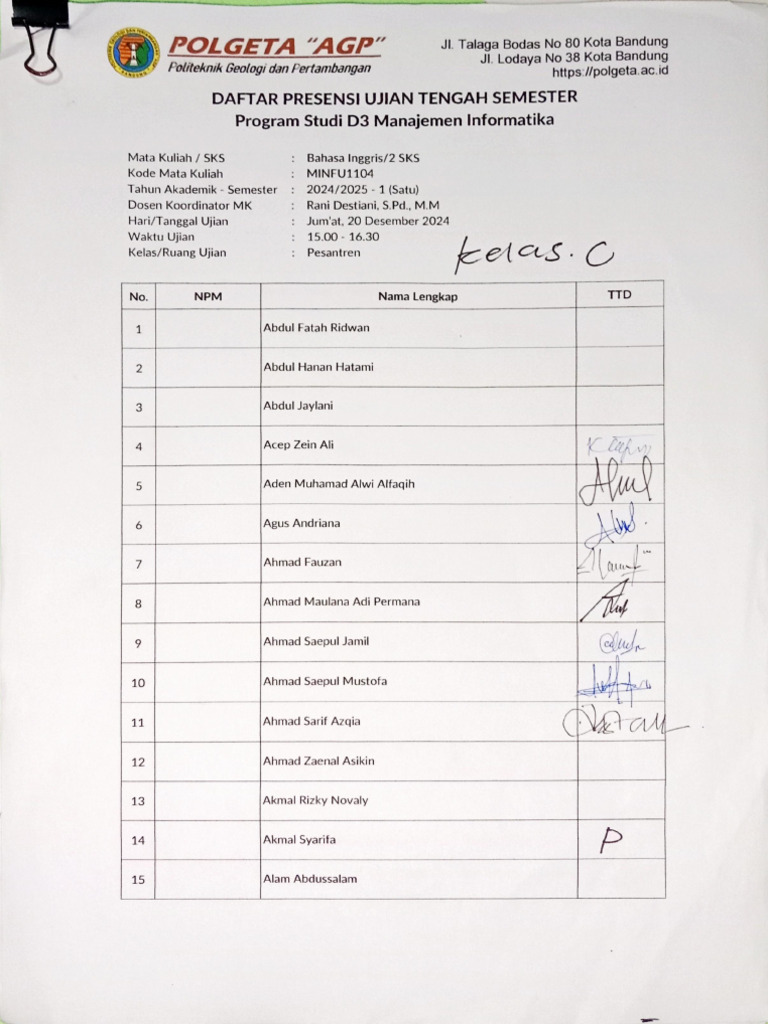 POLGETA "AGP"
Politeknik Geologi dan Pertambangan
Jl. Talaga Bodas No 80 Kota Bandung
Jl. Lodaya No 38 Kota Bandung
https://polgeta.ac.id
DAFTAR PRESENSI UJIAN TENGAH SEMESTER
Program Studi D3 Manajemen Informatika
Mata Kuliah / SKS : Bahasa Inggris/2 SKS
Kode Mata Kuliah : MINFU1104
Tahun Akademik - Semester : 2024/2025 - 1 (Satu)
Dosen Koordinator MK : Rani Destiani, S.Pd., M.M
Hari/Tanggal Ujian : Jum'at, 20 Desember 2024
Waktu Ujian : 15.00 - 16.30
Kelas/Ruang Ujian : Pesantren
Kelas. C
No. NPM Nama Lengkap TTD
1 Abdul Fatah Ridwan
2 Abdul Hanan Hatami
3 Abdul Jaylani
4 Acep Zein Ali
5 Aden Muhamad Alwi Alfaqih
6 Agus Andriana
7 Ahmad Fauzan
8 Ahmad Maulana Adi Permana
9 Ahmad Saepul Jamil
10 Ahmad Saepul Mustofa
11 Ahmad Sarif Azqia
12 Ahmad Zaenal Asikin
13 Akmal Rizky Novaly
14 Akmal Syarifa P
15 Alam Abdussalam